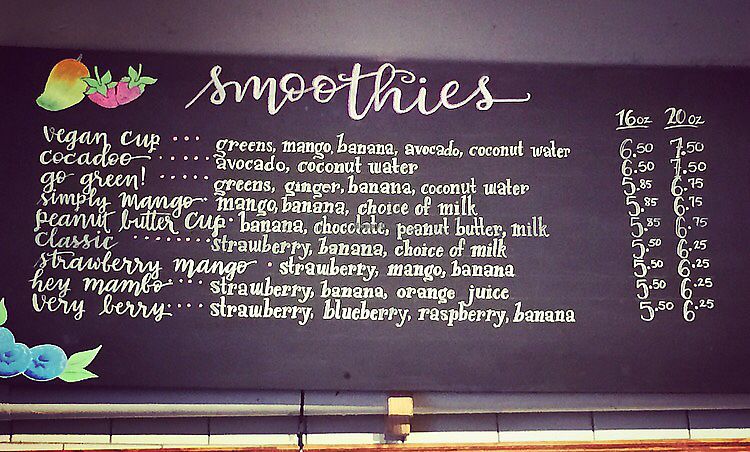 smoothies
16oz 20oz
vegan cup .... greens, mango, banana, avocado, coconut water 6.50 7.50
cocadoo ..... avocado, coconut water 6.50 7.50
go green! ..... greens, ginger, banana, coconut water 5.85 6.75
simply mango.. mango, banana, choice of milk 5.85 6.75
peanut butter cup. banana, chocolate, peanut butter, milk 5.85 6.75
classic ....... strawberry, banana, choice of milk 5.50 6.25
strawberry mango . strawberry, mango, banana 5.50 6.25
hey mambo .... strawberry, banana, orange juice 5.50 6.25
very berry .... strawberry, blueberry, raspberry, banana 5.50 6.25